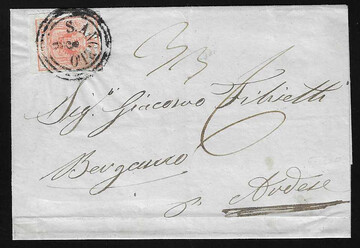 S. ANGELO
Sig.r Giacomo Filisetti
Bergamo
p. Ardese